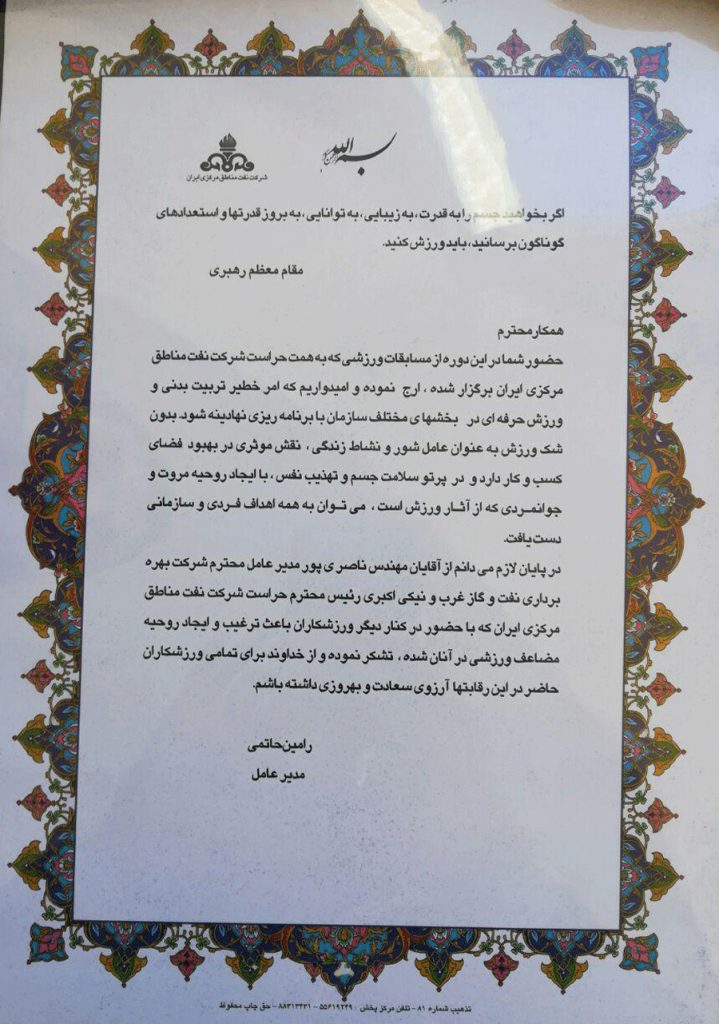 بسم الله الرحمن الرحیم
شرکت نفت مناطق مرکزی ایران
اگر بخواهید جسم را به قدرت، به زیبایی، به توانایی، به بروز قدرتها و استعدادهای
گوناگون برسانید، باید ورزش کنید.
مقام معظم رهبری
همکار محترم
حضور شما در این دوره از مسابقات ورزشی که به همت حراست شرکت نفت مناطق
مرکزی ایران برگزار شده ، ارج نموده و امیدواریم که امر خطیر تربیت بدنی و
ورزش حرفه ای در بخشهای مختلف سازمان با برنامه ریزی نهادینه شود. بدون
شک ورزش به عنوان عامل شور و نشاط زندگی ، نقش موثری در بهبود فضای
کسب و کار دارد و در پرتو سلامت جسم و تهذیب نفس ، با ایجاد روحیه مروت و
جوانمردی که از آثار ورزش است ، می توان به همه اهداف فردی و سازمانی
دست یافت.
در پایان لازم می دانم از آقایان مهندس ناصری پور مدیر عامل محترم شرکت بهره
برداری نفت و گاز غرب و نیکی اکبری رئیس محترم حراست شرکت نفت مناطق
مرکزی ایران که با حضور در کنار دیگر ورزشکاران باعث ترغیب و ایجاد روحیه
مضاعف ورزشی در آنان شده ، تشکر نموده و از خداوند برای تمامی ورزشکاران
حاضر در این رقابتها آرزوی سعادت و بهروزی داشته باشم.
رامین حاتمی
مدیر عامل
تذهیب شماره ۸۱ - تلفن مرکز پخش : ۵۵۶۱۹۲۴۹ - ۸۸۳۱۳۴۳۱ - حق چاپ محفوظ